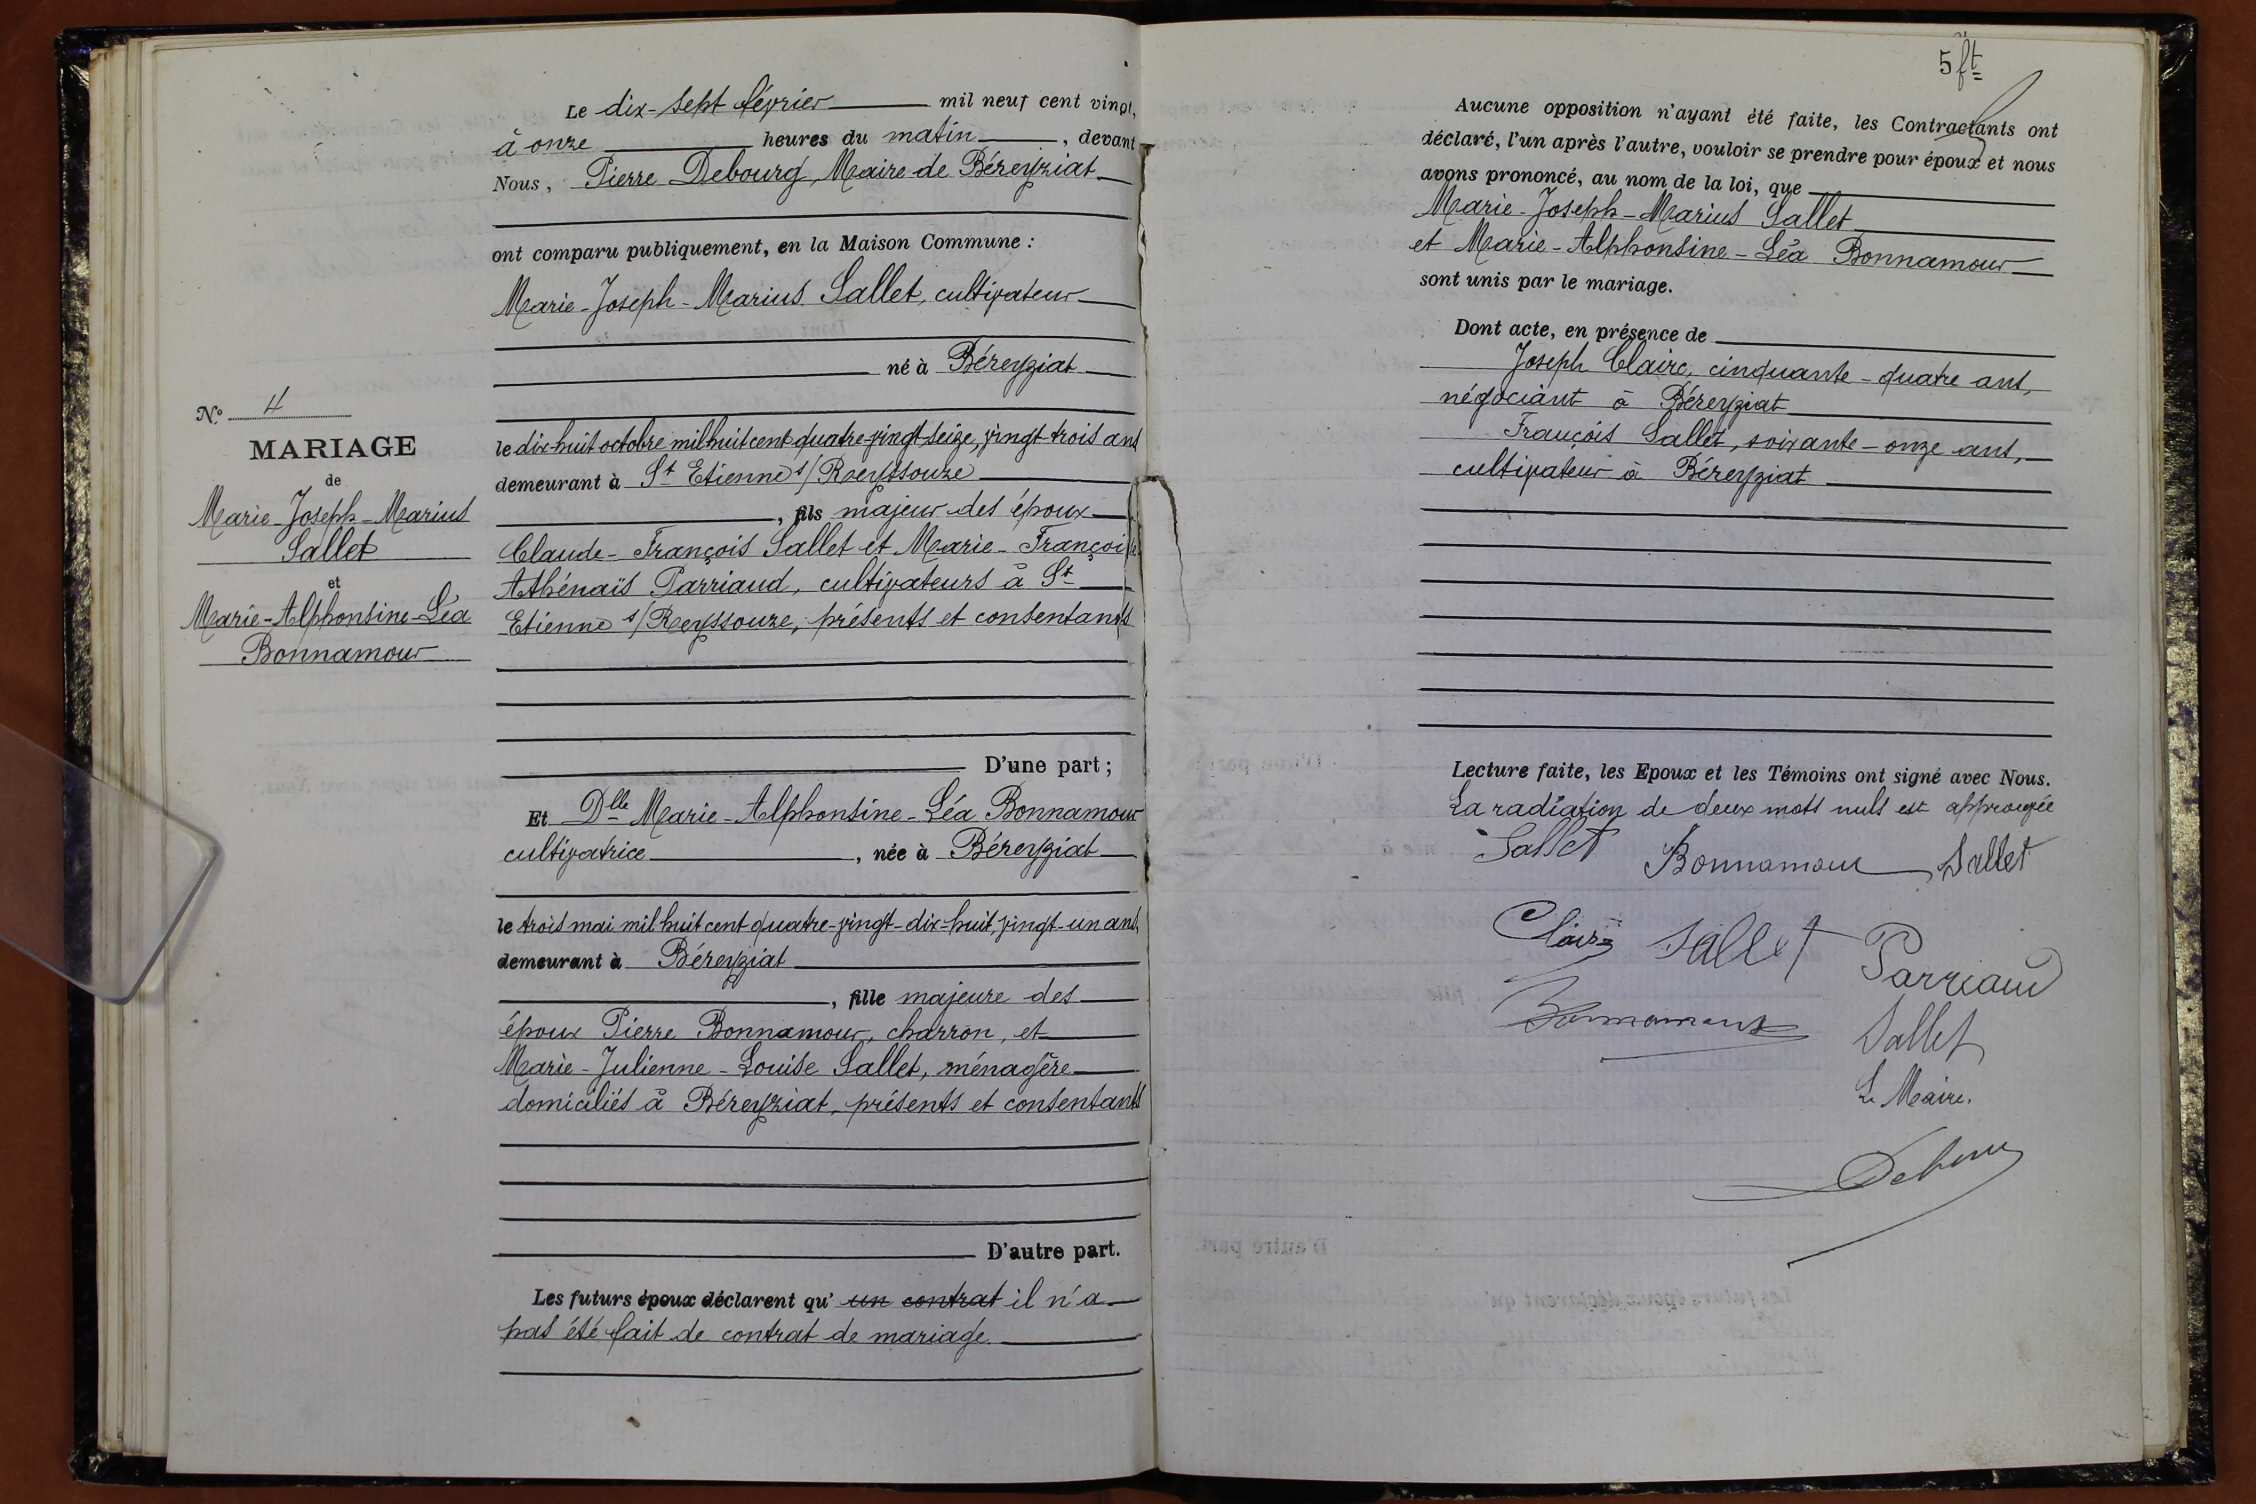 N° 4
MARIAGE
de
Marie-Joseph-Marius
Sallet
et
Marie-Alphonsine-Léa
Bonnamour
Le dix-sept février mil neuf cent vingt,
à onze heures du matin, devant
Nous, Pierre Debourg, Maire de Béreyziat
ont comparu publiquement, en la Maison Commune :
Marie-Joseph-Marius Sallet, cultivateur
né à Béreyziat
le dix-huit octobre mil huit cent quatre-vingt-seize, vingt-trois ans
demeurant à St Etienne s/Reyssouze
, fils majeur des époux
Claude-François Sallet et Marie-Françoise
Athénaïs Parriaud, cultivateurs à St
Etienne s/Reyssouze, présents et consentants
D'une part ;
Et Dlle Marie-Alphonsine-Léa Bonnamour
cultivatrice, née à Béreyziat
le trois mai mil huit cent quatre-vingt-dix-huit, vingt-un ans,
demeurant à Béreyziat
, fille majeure des
époux Pierre Bonnamour, charron, et
Marie-Julienne-Louise Sallet, ménagère
domiciliés à Béreyziat, présents et consentants
D'autre part.
Les futurs époux déclarent qu' un contrat il n'a
pas été fait de contrat de mariage.
5 ft
Aucune opposition n'ayant été faite, les Contractants ont
déclaré, l'un après l'autre, vouloir se prendre pour époux et nous
avons prononcé, au nom de la loi, que
Marie-Joseph-Marius Sallet
et Marie-Alphonsine-Léa Bonnamour
sont unis par le mariage.
Dont acte, en présence de
Joseph Claire, cinquante-quatre ans,
négociant à Béreyziat
François Sallet, soixante-onze ans,
cultivateur à Béreyziat
Lecture faite, les Epoux et les Témoins ont signé avec Nous.
La radiation de deux mots nuls est approuvée
Sallet Bonnamour Sallet
Claire Sallet Parriaud
Bonnamour Sallet
Le Maire.
Debourg